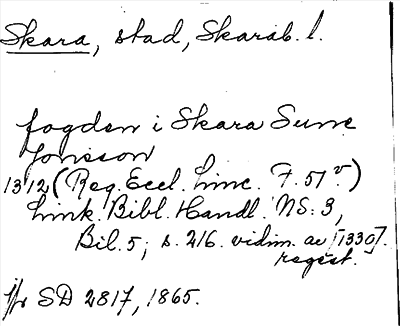 Skara, stad, Skarab. l.
fogden i Skara Sune
Jonsson
1312 (Reg. Eccl. Linc. F. 51 v.)
Link. Bibl. Handl. NS: 3,
Bil. 5; s. 216. vidim. av [1330].
regest.
Jfr SD 2817, 1865.